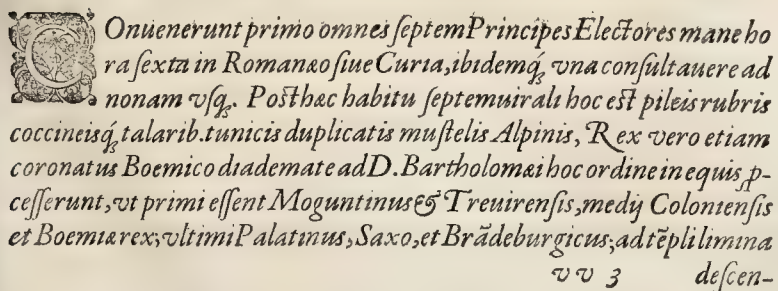 COnuenerunt primo omnes ſeptem Principes Electores mane ho
ra ſexta in Romanæo ſiue Curia, ibidemq́; vna conſultauere ad
nonam vſq;. Poſthæc habitu ſeptemuirali hoc eſt pileis rubris
coccineisq́; talarib. tunicis duplicatis muſtelis Alpinis, Rex vero etiam
coronatus Boemico diademate ad D. Bartholomæi hoc ordine in equis ꝓ-
ceſſerunt, vt primi eſſent Moguntinus & Treuirenſis, medij Colonienſis
et Boemiæ rex, vltimi Palatinus, Saxo, et Brādeburgicus, ad tēpli limina
vv 3 deſcen-